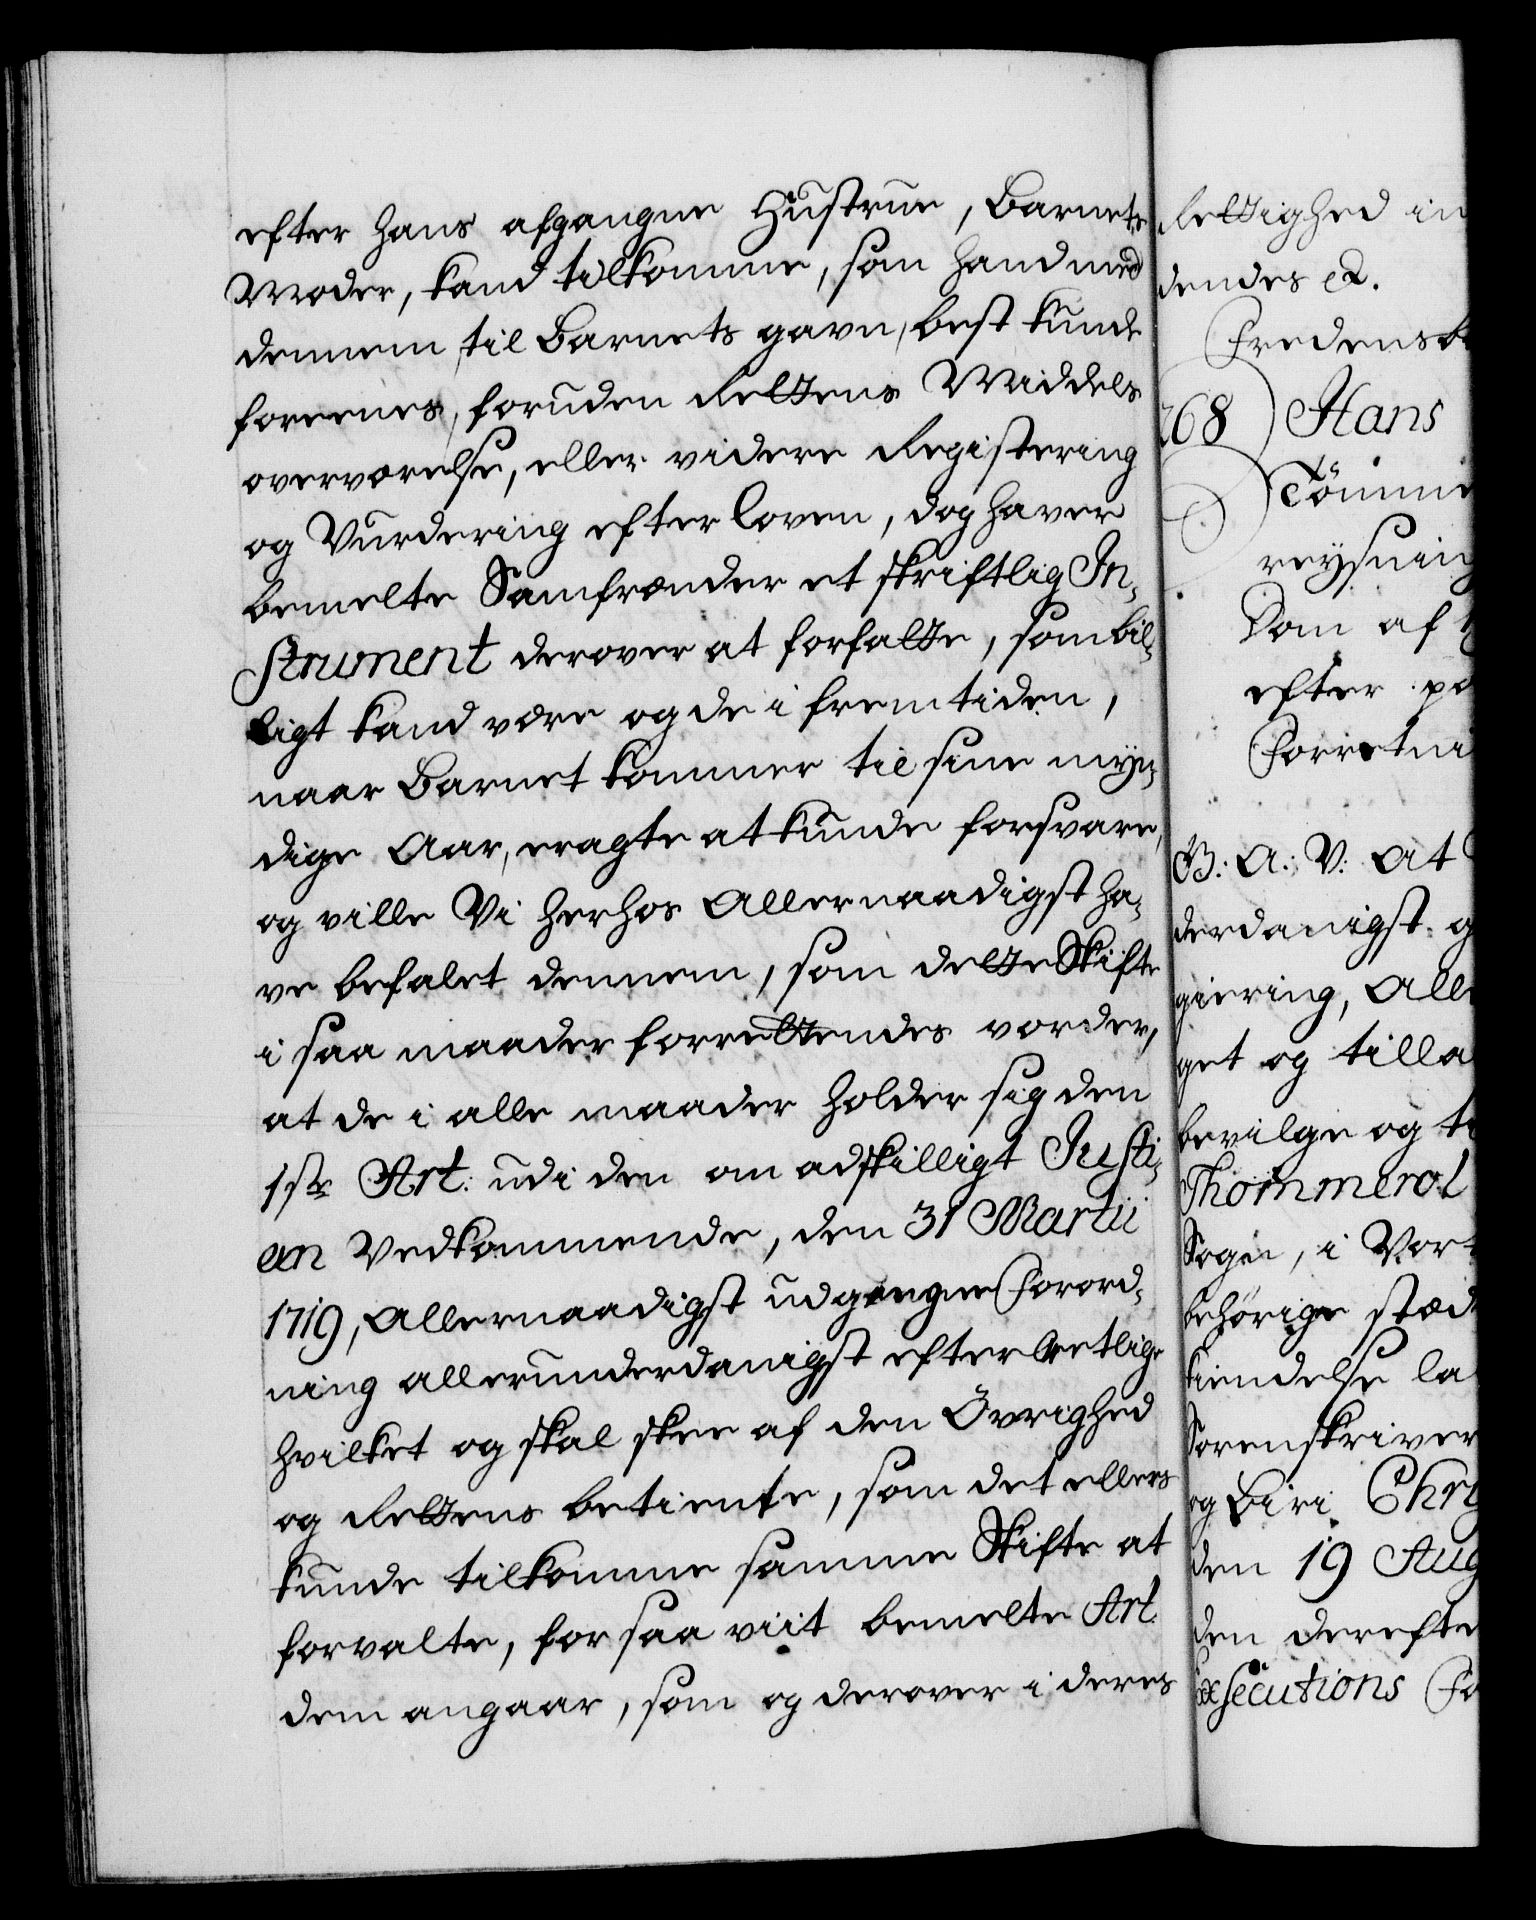 efter hans afgangne Hustrue, Barnets
Moder, kand tilkomme, som hand med
dennem til Barnets gavn, best kunde
foreenes, foruden Rettens Middels
overværelse, eller videre Registering
og Vurdering efter Loven, dog haver
bemelte Samfrænder et skriftlig In-
strument derover at forfatte, som bil-
ligt kand være og de i fremtiden,
naar Barnet kommer til sine myn-
dige Aar, eragte at kunde forsvare,
og ville Vi herhos Allernaadigst ha-
ve befalet dennem, som dette Skifte
i saa maader forrettendes vorder,
at de i alle maader holder sig den
1ste Art: udi den om adskilligt Justi-
en Vedkommende, den 31 Martii
1719, Allernaadigst udgangne Forord-
ning allerunderdanigst efterrettlige
hvilket og skal skee af den Övrighed
og Rettens betiente, som det ellers
kunde tilkomme samme Skifte at
forvalte, for saa viit bemelte Art.
dem angaar, som og derover i deres
Rettighed in
dendes etc.
Fredensb
268 Hans
Tömme
reysning
Dom af
efter pa
Forretni
G: A: V: At
derdanigst g
giering, All
get og tilla
bevilge og ti
Thommerol
Sogn, i Vor
behörige stæd
kiendelse la
Sorenskriver
og Biri Chr
den 19 Aug
den derefte
Execcutions Fo